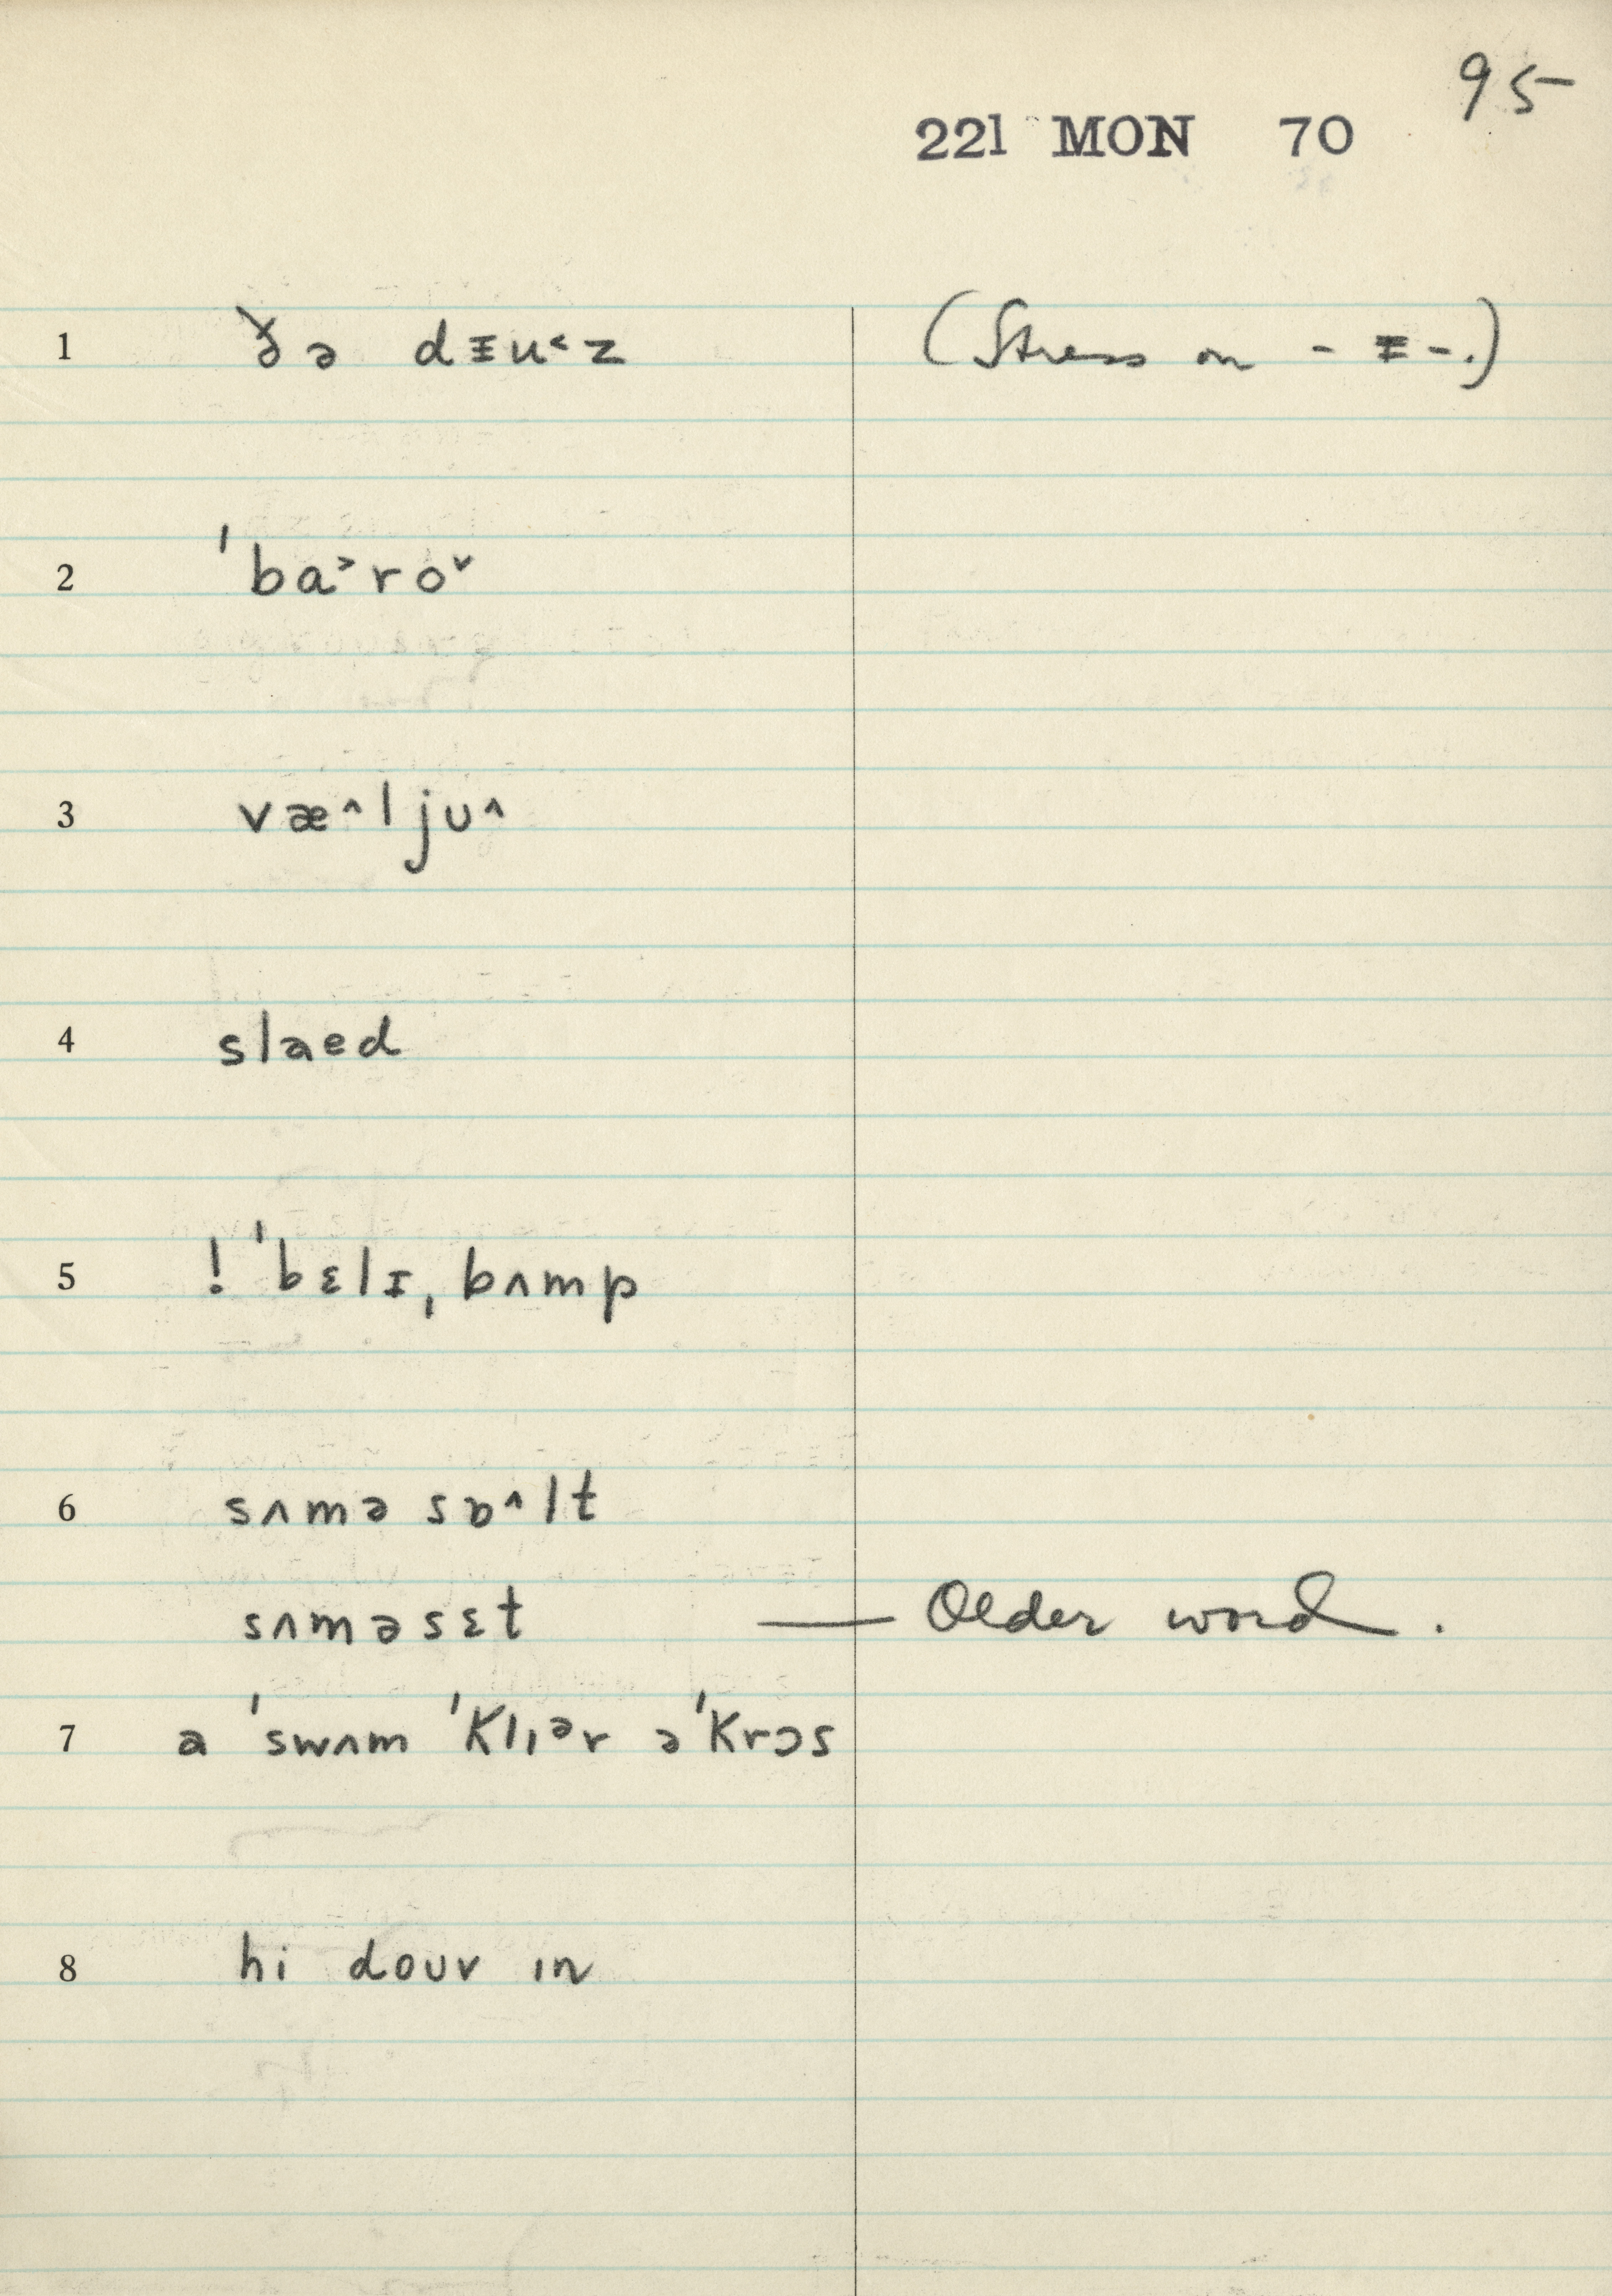 95
221 MON 70
1 ðə dᵻu˂z (Stress on - ᵻ -.)
2 ˈba˃ro˅
3 væ˄ljʊ˄
4 slaed
5 ! ˈbɛlɪˌbʌmp
6 sʌmə sɒ˄lt
sʌməsɛt — Older word.
7 a ˈswʌm ˈklɪər əˈkrɔs
8 hi doʊv ɪn